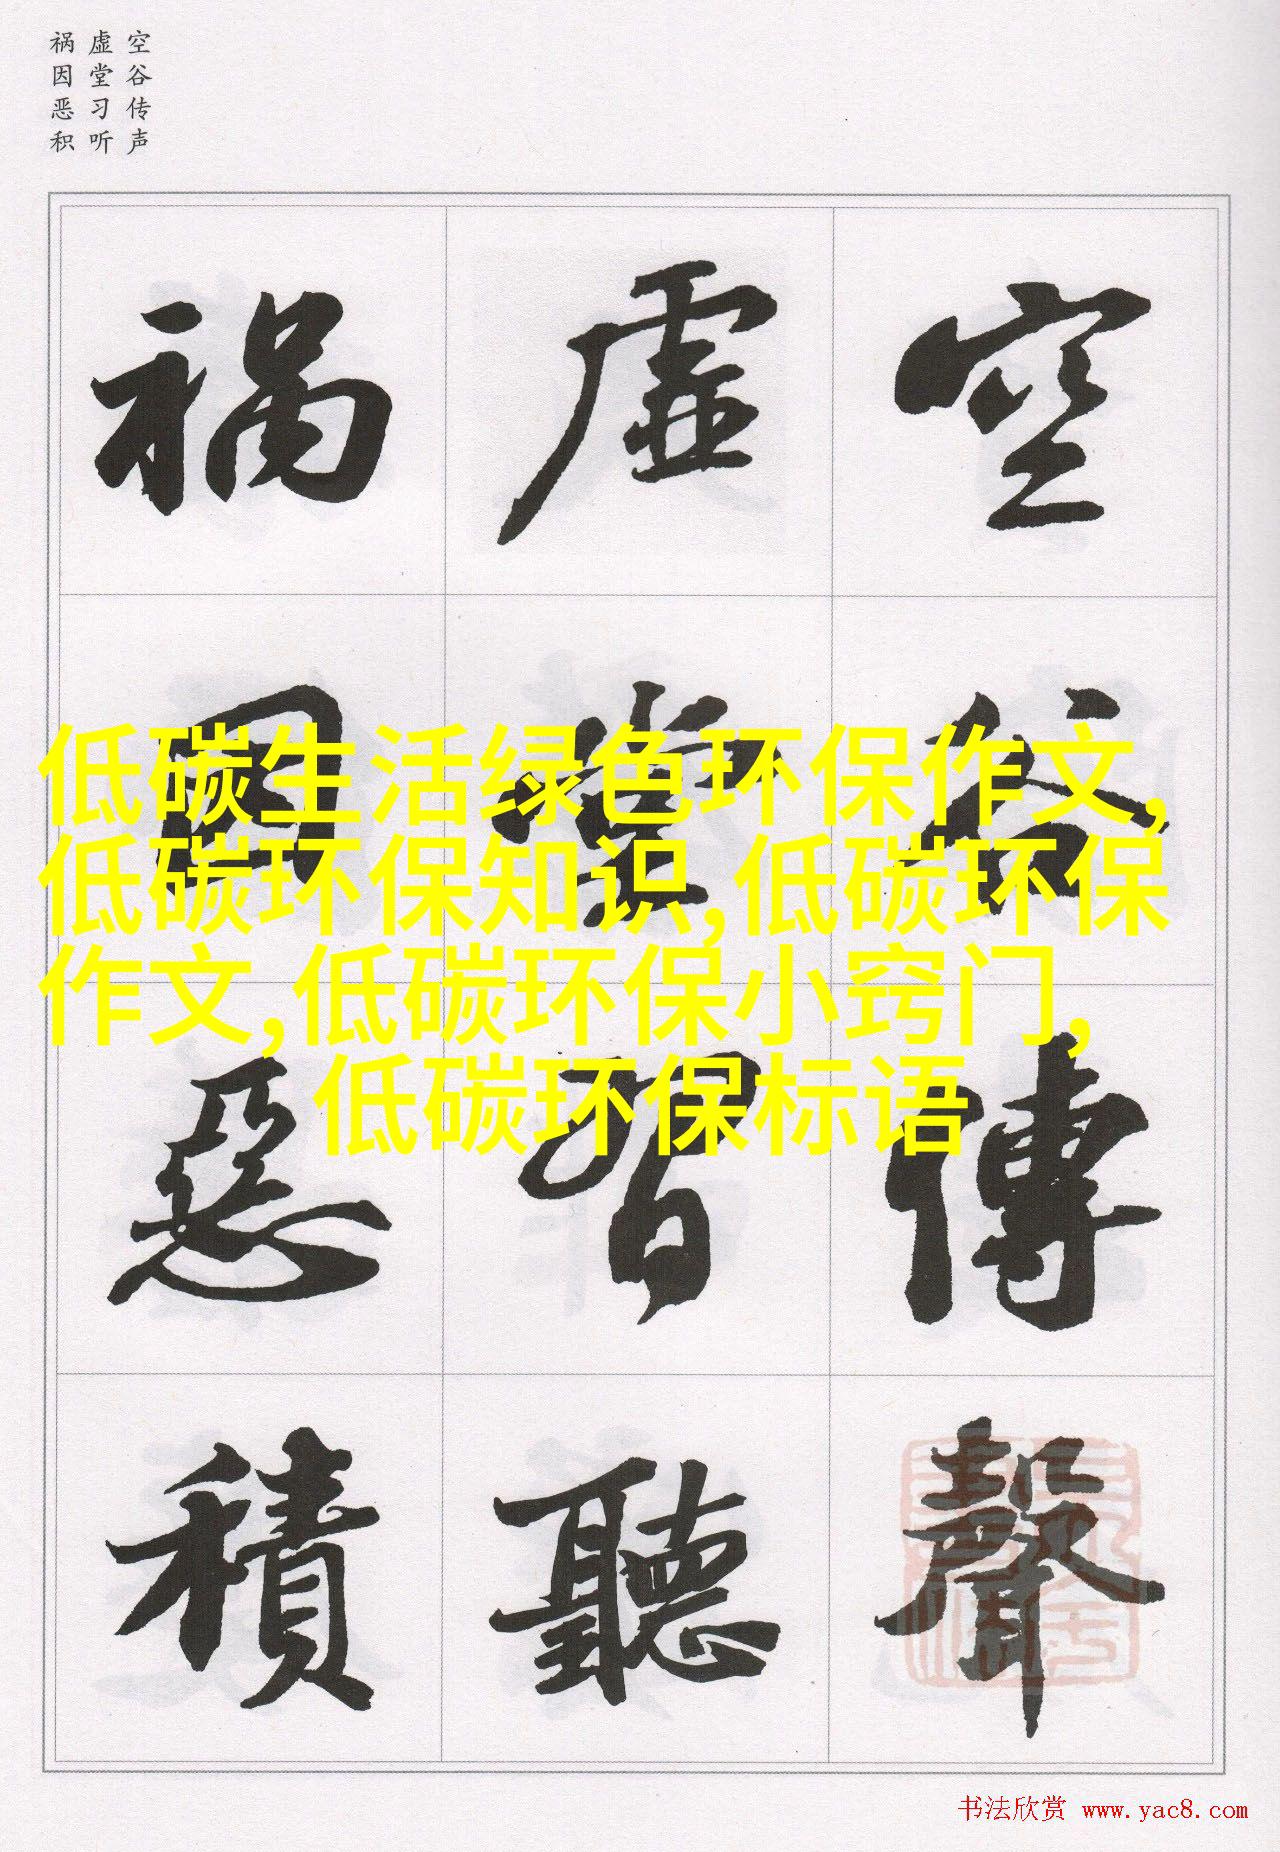 空谷传声
虚堂习听
祸因恶积
空谷傳聲
虚堂習聽
禍因惡積
低碳生活绿色环保作文,
低碳环保知识,低碳环保
作文,低碳环保小窍门,
低碳环保标语
书法欣赏 www.yac8.com